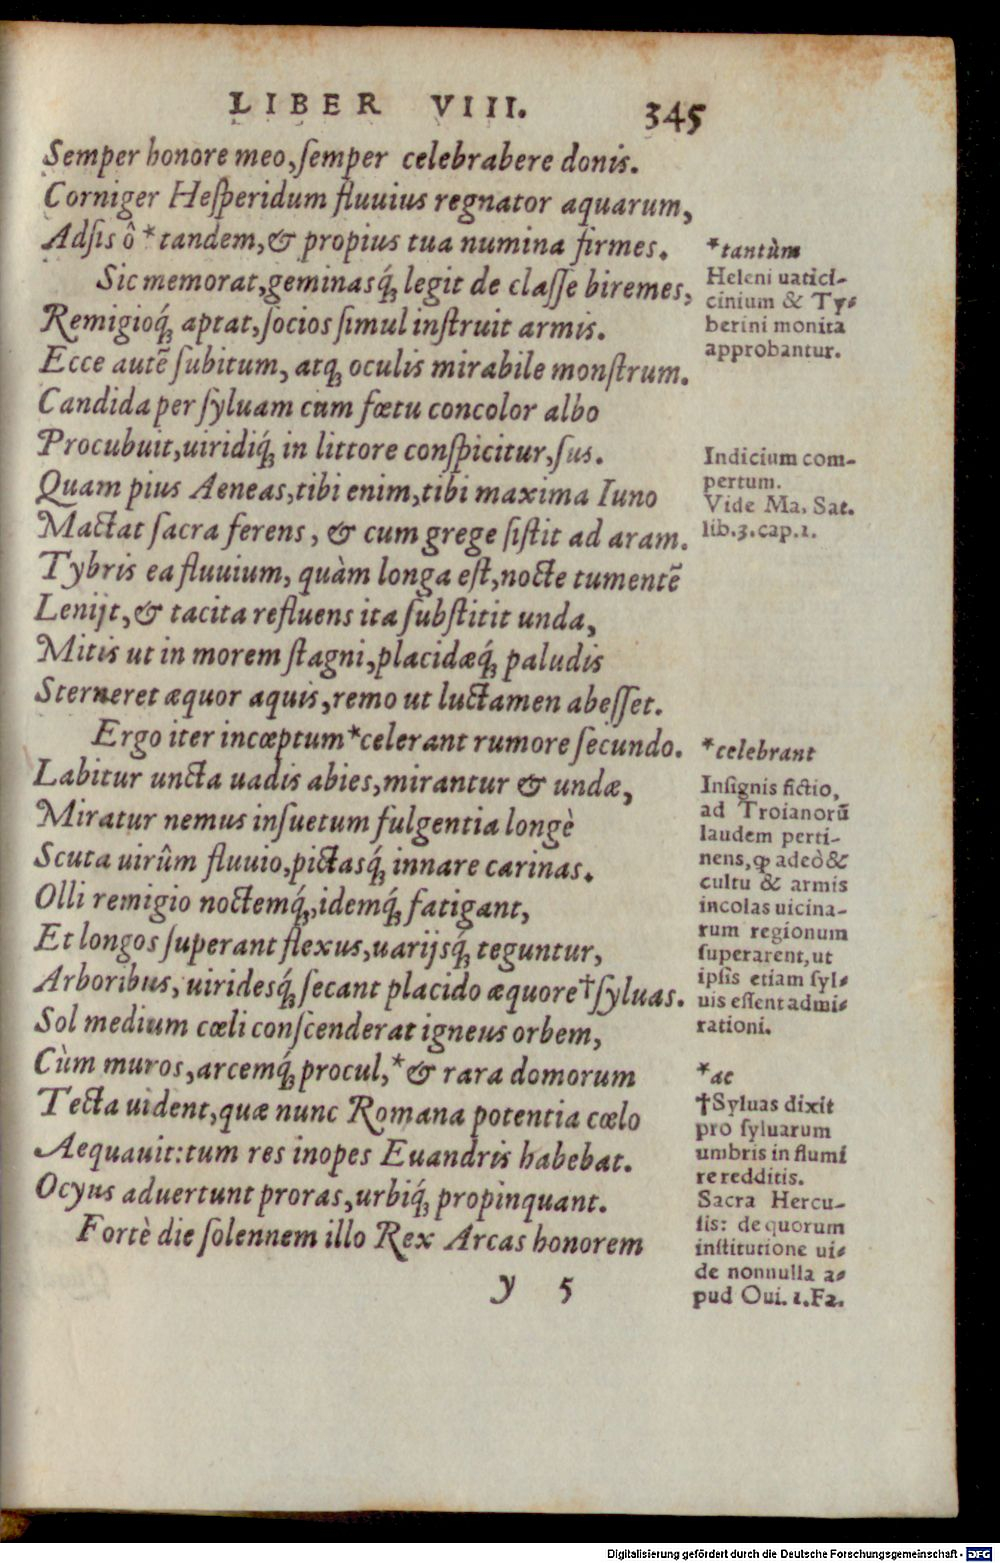 LIBER VIII. 345
Semper honore meo, ſemper celebrabere donis.
Corniger Heſperidum fluuius regnator aquarum,
Adſis ô *tandem, & propius tua numina firmes.
Sic memorat, geminasq́; legit de claſſe biremes,
Remigioq́; aptat, ſocios ſimul inſtruit armis.
Ecce autẽ ſubitum, atq; oculis mirabile monſtrum.
Candida per ſyluam cum fœtu concolor albo
Procubuit, uiridiq́; in littore conſpicitur, ſus.
Quam pius Aeneas, tibi enim, tibi maxima Iuno
Mactat ſacra ferens, & cum grege ſiſtit ad aram.
Tybris ea fluuium, quàm longa eſt, nocte tumentẽ
Lenijt, & tacita refluens ita ſubſtitit unda,
Mitis ut in morem ſtagni, placidæq́; paludis
Sterneret æquor aquis, remo ut luctamen abeſſet.
Ergo iter incœptum *celerant rumore ſecundo.
Labitur uncta uadis abies, mirantur & undæ,
Miratur nemus inſuetum fulgentia longè
Scuta uirûm fluuio, pictasq́; innare carinas.
Olli remigio noctemq́;, idemq́; fatigant,
Et longos ſuperant flexus, uarijsq́; teguntur,
Arboribus, uiridesq́; ſecant placido æquore †ſyluas.
Sol medium cœli conſcenderat igneus orbem,
Cùm muros, arcemq́; procul, *& rara domorum
Tecta uident, quæ nunc Romana potentia cœlo
Aequauit: tum res inopes Euandris habebat.
Ocyus aduertunt proras, urbiq́; propinquant.
Fortè die ſolennem illo Rex Arcas honorem
y 5
*tantùm
Heleni uatici-
cinium & Ty-
berini monita
approbantur.
Indicium com-
pertum.
Vide Ma. Sat.
lib.3.cap.1.
*celebrant
Inſignis fictio,
ad Troianorũ
laudem perti-
nens, ꝙ adeò &
cultu & armis
incolas uicina-
rum regionum
ſuperarent, ut
ipſis etiam ſyl-
uis eſſent admi-
rationi.
*ac
†Syluas dixit
pro ſyluarum
umbris in flumi
re redditis.
Sacra Hercu-
lis: de quorum
inſtitutione ui-
de nonnulla a-
pud Oui. 1. Fa.
Digitalisierung gefördert durch die Deutsche Forschungsgemeinschaft - DFG